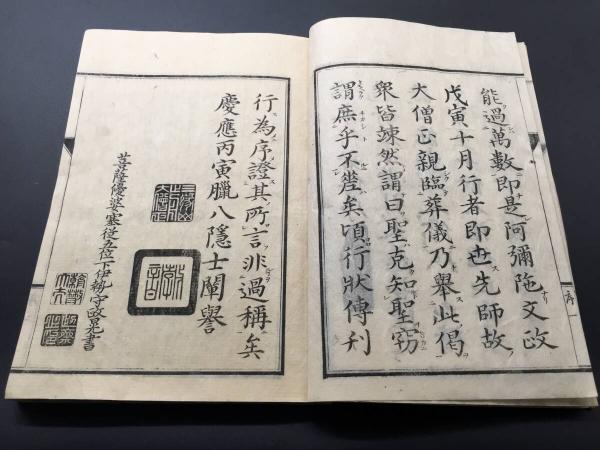 能過萬數即是阿彌陀文政
戊寅十月行者即世先師故
大僧正親臨葬儀乃舉此偈
衆皆竦然謂曰聖克知聖竊
謂庶乎不㷀矣頃行狀傳刊
序
行為序證其所言非過稱矣
慶應丙寅臘八隱士闡譽
菩薩優婆塞從五位下伊勢守政晃書